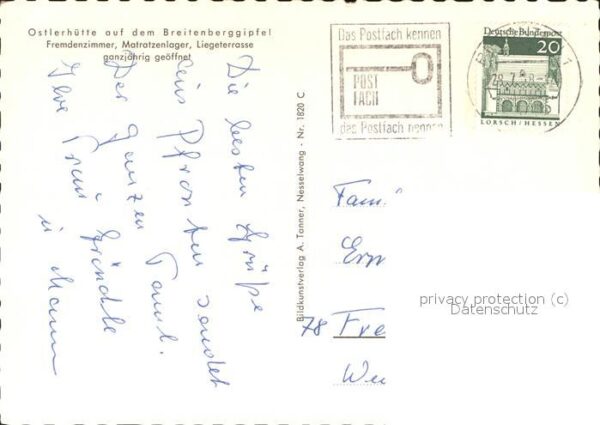 Ostlerhütte auf dem Breitenberggipfel
Fremdenzimmer, Matratzenlager, Liegeterrasse
ganzjährig geöffnet
Die besten Grüße
aus Pfronten sendet
Der ganzen Faml.
Ihre Frau
u. Mann
Bildkunstverlag A. Tanner, Nesselwang - Nr. 1820 C
Das Postfach kennen
POST
FACH
das Postfach nennen
Deutsche Bundespost
20
LORSCH/HESSEN
Fam.
Ern
78 Fre
We
privacy protection (c)
Datenschutz